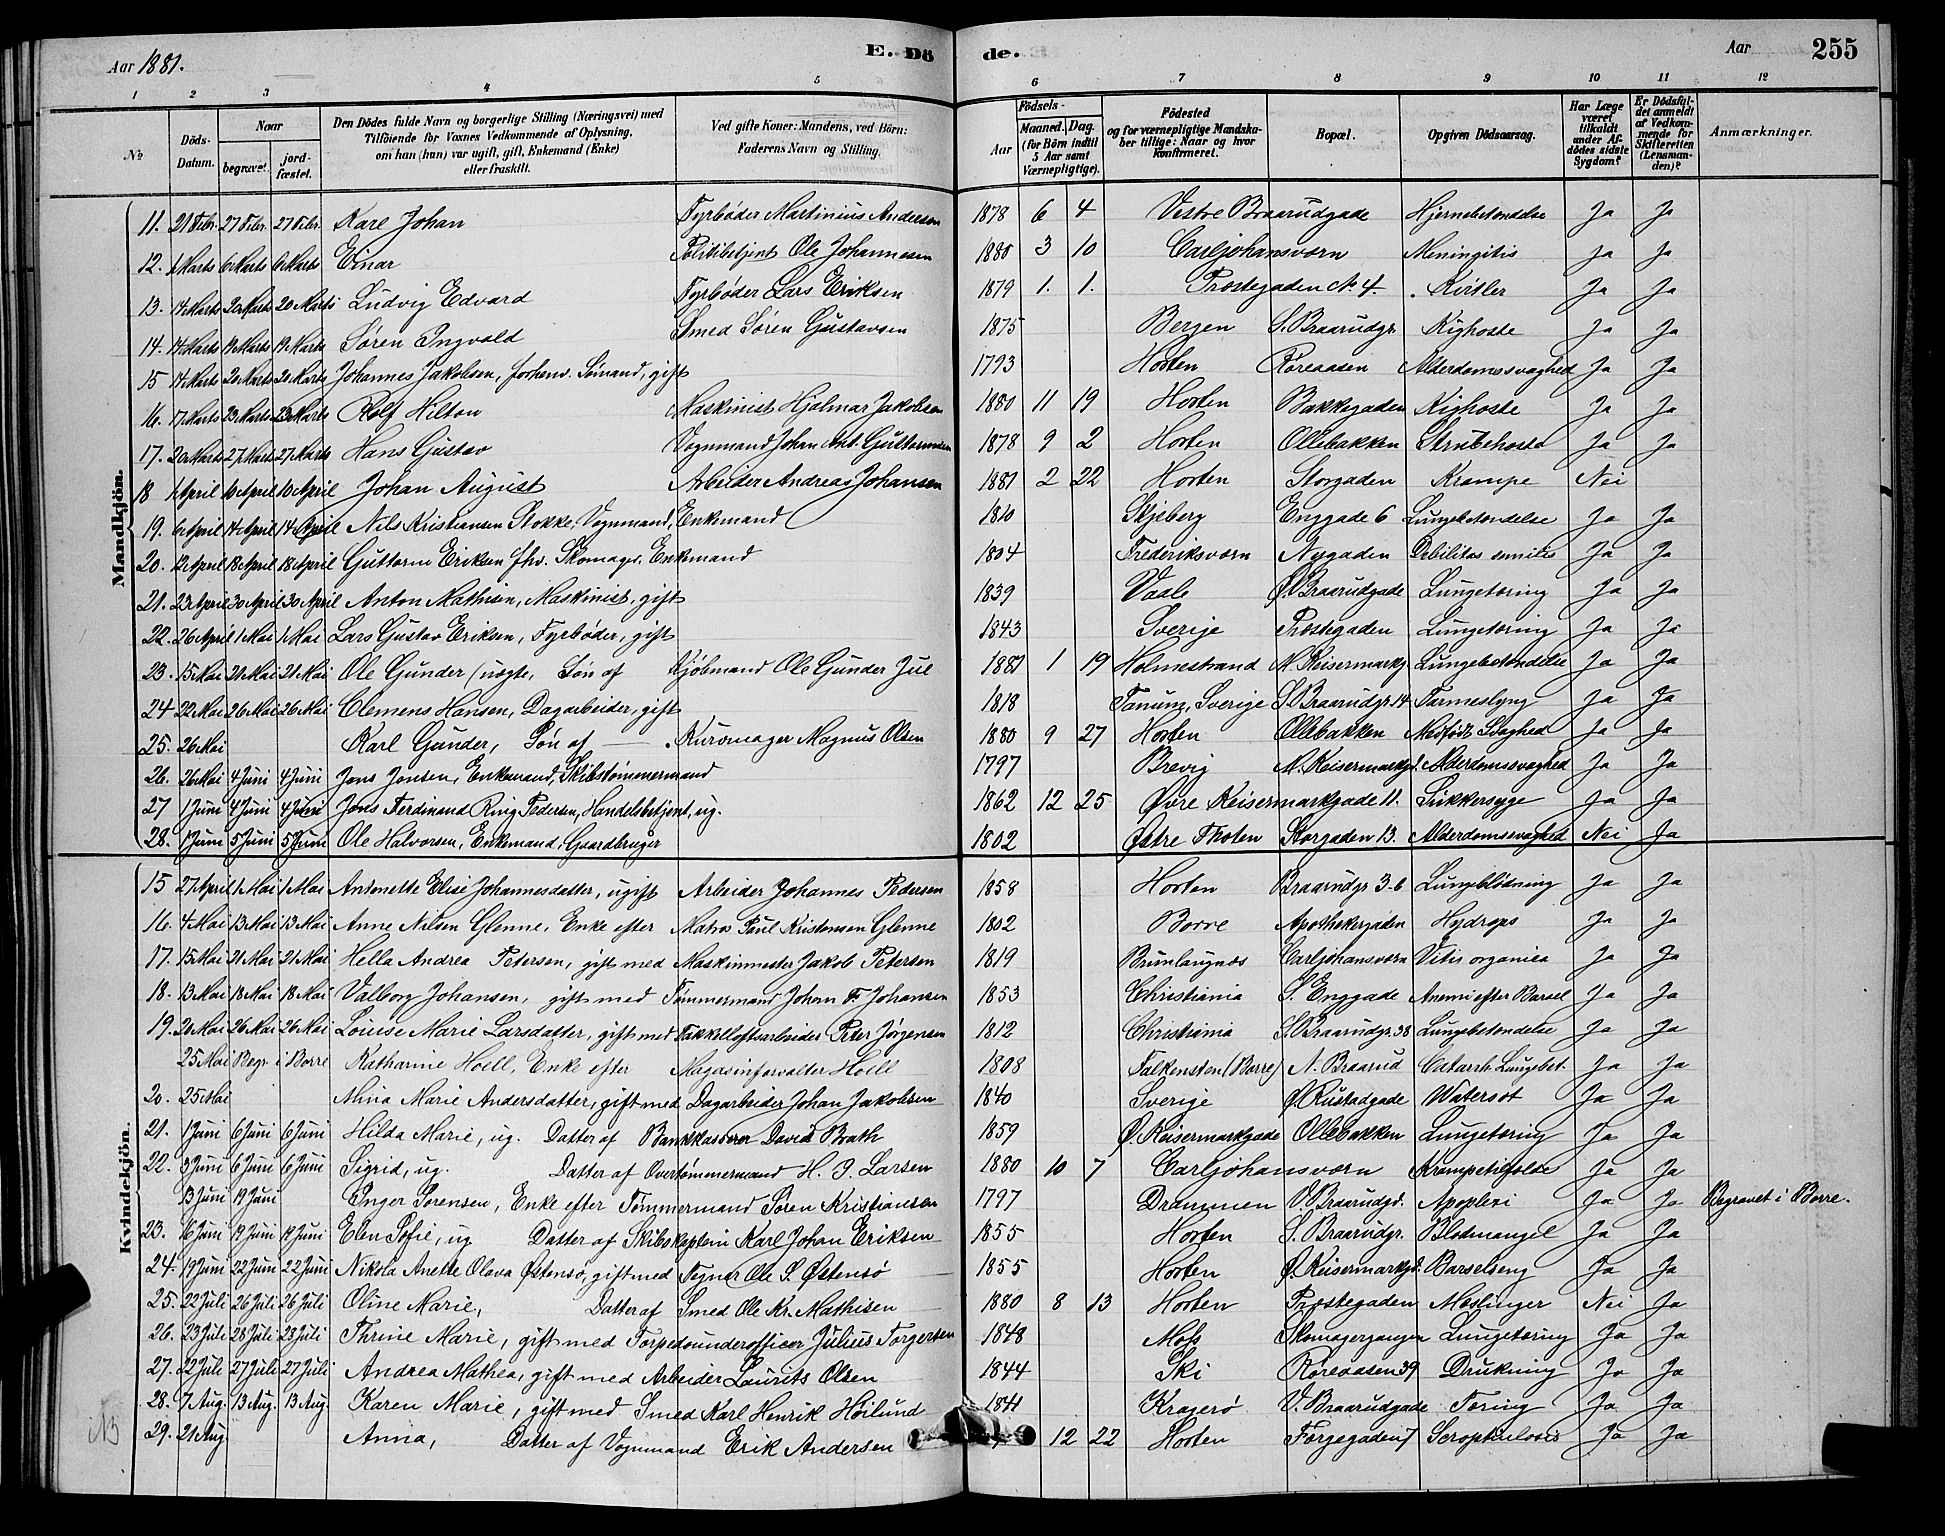 Aar 1881.
E. Dö
de.
Aar
255
1 2 3 4 5 6 7 8 9 10 11 12
No
Döds-Datum.
Naar
begravet.
jord-fæstet.
Den Dödes fulde Navn og borgerlige Stilling (Næringsvei) med
Tilföiende for Voxnes Vedkommende af Oplysning,
om han (hun) var ugift, gift, Enkemand (Enke)
eller fraskilt.
Ved gifte Koner: Mandens, ved Börn:
Faderens Navn og Stilling.
Födsels-
Aar
Maaned. Dag.
(for Börn indtil
5 Aar samt
Værnepligtige).
Födested
og for værnepligtige Mandska-
ber tillige: Naar og hvor
konfirmeret.
Bopæl.
Opgiven Dödsaarsag.
Har Læge
været
tilkaldt
under Af-
dödes sidste
Sygdom?
Er Dödsfal-
det anmeldt
af Vedkom-
mende for
Skifteretten
(Lensman-
den)?
Anmærkninger.
Mandkjön.
11. 21 Febr. 27 Febr. 27 Febr. Karl Johan Fyrbøder Martinius Andersen 1878 6 4 Vestre Braarudgade Hjernebetændelse Ja Ja
12. 1 Marts 6 Marts 6 Marts Einar Politibetjent Ole Johannesen 1880 3 10 Carljohansværn Meningitis Ja Ja
13. 14 Marts 20 Marts 20 Marts Ludvig Edvard Fyrbøder Lars Eriksen 1879 1. 1. Præstegaden No. 4. Kirtler Ja Ja
14. 14 Marts 19 Marts 19 Marts Søren Ingvald Smed Søren Gustavsen 1875 Bergen S. Braarudgr. Kighoste Ja Ja
15 14 Marts 20 Marts 20 Marts Johannes Jakobsen, forhenv. Sømand, gift 1793 Horten Røreaasen Alderdomssvaghed Ja Ja
16. 17 Marts 23 Marts 23 Marts Rolf Hilton Maskinist Hjalmar Jakobsen 1880 11 19 Horten Bakkegaden Kighoste Ja Ja
17. 20 Marts 27 Marts 27 Marts Hans Gustav Vognmand Johan Ant. Guttormsen 1878 9 2 Horten Ollebakken Strubehoste Ja Ja
18 1 April 10 April 10 April Johan August Arbeider Andreas Johansen 1881 2 22 Horten Storgaden Krampe Nei
19. 6 April 14 April 14 April Nils Kristiansen Stokke, Vognmand, Enkemand 1810 Skjeberg Enggade 6 Lungebetændelse Ja Ja
20. 12 April 18 April 18 April Guttorm Eriksen fhv. Skomager. Enkemand 1804 Frederiksværn Nygaden Debilitas senilis Ja Ja
21. 23 April 30 April 30 April Anton Mathisen, Maskinist, gift 1839 Vaale Ø. Braarudgade Lungetæring Ja Ja
22. 26 April 1 Mai 1 Mai Lars Gustav Eriksen, Fyrbøder, gift 1843 Sverige Præstegaden Lungetæring Ja Ja
23. 15 Mai 21 Mai 21 Mai Ole Gunder (uægte, Søn af Kjøbmand Ole Gunder Jul 1881 1 19 Holmestrand N. Keisermarkg. Lungebetændelse Ja Ja
24 22 Mai 26 Mai 26 Mai Clemens Hansen, Dagarbeider, gift 1818 Tanum, Sverige S. Braarudgr. 14 Tarmeslyng Ja Ja
25. 26 Mai Karl Gunder, Søn af Kurvmager Magnus Olsen 1880 9 27 Horten Ollebakken Medfødt Svaghed Ja Ja
26. 26 Mai 4 Juni 4 Juni Jens Jensen, Enkemand, Skibstømmermand 1797 Brevig N. Keisermarkgd. Alderdomssvaghed Ja Ja
27 1 Juni 4 Juni 4 Juni Jens Ferdinand Ring Pedersen, Handelsbetjent, ug. 1862 12 25 Øvre Keisermarkgade 11. Sukkersyge Ja Ja
28. 1 Juni 5 Juni 5 Juni Ole Halvorsen, Enkemand, Gaardbruger 1802 Østre Thoten Storgaden 13. Alderdomssvaghed Nei Ja
Kvindekjön.
15 27 April 1 Mai 1 Mai Antonette Elise Johannesdatter, ugift Arbeider Johannes Pedersen 1858 Horten Braarudgr 3-6 Lungeblødning Ja Ja
16. 4 Mai 13 Mai 13 Mai Anne Nilsen Glenne, Enke efter Matros Paul Kristensen Glenne 1802 Borre Apothekergaden Hydrops Ja Ja
17. 15 Mai 21 Mai 21 Mai Hella Andrea Petersen, gift med Maskinmester Jakob Petersen 1819 Brunlaugnæs Carljohansværn Vitis organica Ja Ja
18. 13 Mai 18 Mai 18 Mai Valborg Johansen, gift med Tømmermand Johan F. Johansen 1853 Christiania S. Enggade Anemi efter Barsel Ja Ja
19. 20 Mai 26 Mai 26 Mai Louise Marie Larsdatter, gift med Takkelloftsarbeider Peter Jørgensen 1812 Christiania S. Braarudgr. 38 Lungebetændelse Ja Ja
25 Mai Begr. i Borre Katharine Hoell, Enke efter Magasinforvalter Hoell 1808 Falkensten (Borre) N. Braarud Catarrh. Lungebet. Ja Ja
20. 25 Mai Mina Marie Andersdatter, gift med Dagarbeider Johan Jakobsen 1840 Sverige Ø. Rustadgade Watersot Ja Ja
21. 1 Juni 6 Juni 6 Juni Hilda Marie, ug. Datter af Bankkasserer David Brath 1859 Ø. Keisermarkgade Ollebakken Lungetæring Ja Ja
22. 3 Juni 6 Juni 6 Juni Sigrid, ug. Datter af Overtømmermand H. P. Larsen 1880 10 7 Carljohansværn Krampetilfælde Ja Ja
13 Juni 19 Juni Inger Sørensen, Enke efter Tømmermand Søren Kristiansen 1797 Drammen V. Braarudgd. Apoplexi Ja Ja Begravet i Borre.
23. 16 Juni 19 Juni 19 Juni Elen Sofie, ug Datter af Skibskaptein Karl Johan Eriksen 1855 Horten S. Braarudgr. Blodmangel Ja Ja
24. 19 Juni 22 Juni 22 Juni Nikola Anette Olava Østensø, gift med Tegner Ole S. Østensø 1855 Horten Ø. Keisermarkgd. Barselseng Ja Ja
25. 22 Juli 26 Juli 26 Juli Oline Marie, Datter af Smed Ole Kr. Mathisen 1880 8 13 Horten Præstegaden Meslinger Nei Ja
26. 23 Juli 28 Juli 28 Juli Thrine Marie, gift med Torpedounderofficer Julius Torgersen 1848 Moss Skomagergangen Lungetæring Ja Ja
27. 22 Juli 27 Juli 27 Juli Andrea Mathea, gift med Arbeider Laurits Olsen 1844 Ski Røreaasen 39 Drukning Ja Ja
28. 7 Aug. 13 Aug. 13 Aug. Karen Marie, gift med Smed Karl Henrik Høilund 1841 Kragerø V. Braarudgade Tæring Ja Ja
NB 29. 21 Aug. Anna, Datter af Vognmand Erik Andersen 12 22 Horten Færgegaden 7 Scrophulosis Ja Ja